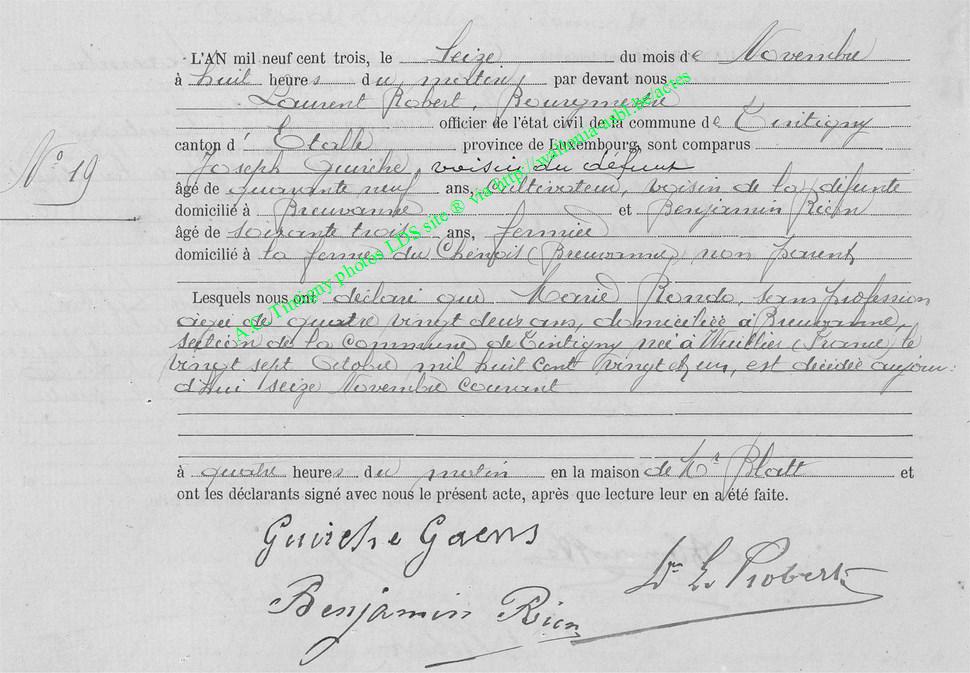 L'AN mil neuf cent trois, le Seize du mois de Novembre
à huit heures du matin par devant nous
Laurent Robert, Bourgmestre
officier de l'état civil de la commune de Tintigny
canton d'Etalle province de Luxembourg, sont comparus
N° 19
Joseph Guirche voisin du défunt
âgé de quarante neuf ans, cultivateur, voisin de la défunte
domicilié à Breuvanne et Benjamin Rien
âgé de soixante trois ans, fermier
domicilié à la ferme du Chenois (Breuvanne) non parent
Lesquels nous ont déclaré que Marie Rondo, sans profession
âgée de quatre vingt deux ans, domiciliée à Breuvanne,
section de la commune de Tintigny née à (France) le
vingt sept Octobre mil huit cent vingt et un, est décédée aujour-
d'hui seize Novembre courant
à quatre heures du matin en la maison de Mr Blatt et
ont les déclarants signé avec nous le présent acte, après que lecture leur en a été faite.
Guirche Gaens
L. Robert
Benjamin Rien
A.C. Tintigny photos LDS site ® via http://wallonia-asbl.be/actes